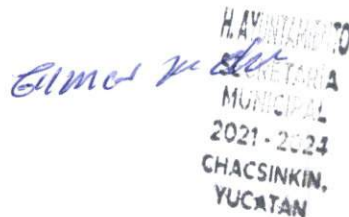 H. AYUNTAMIENTO
SECRETARIA
MUNICIPAL
2021 - 2024
CHACSINKIN,
YUCATAN